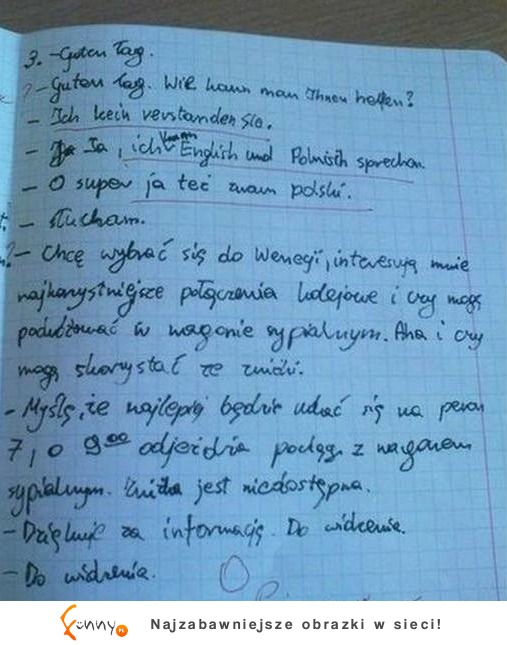 3. -Guten Tag.
? -Guten Tag. Wie kann man Ihnen helfen?
- Ich kein verstanden Sie.
- Ja, ich kann English und Polnisch sprechen.
- O super ja też znam polski.
- Słucham.
?- Chcę wybrać się do Wenecji, interesują mnie
najkorzystniejsze połączenia kolejowe i czy mogę
podróżować w wagonie sypialnym. Aha i czy
mogę skorzystać ze zniżki.
- Myślę, że najlepiej będzie udać się na peron
7, o 9⁰⁰ odjeżdża pociąg z wagonem
sypialnym. Zniżka jest niedostępna.
- Dziękuję za informację. Do widzenia.
- Do widzenia.
Funny.PL
Najzabawniejsze obrazki w sieci!